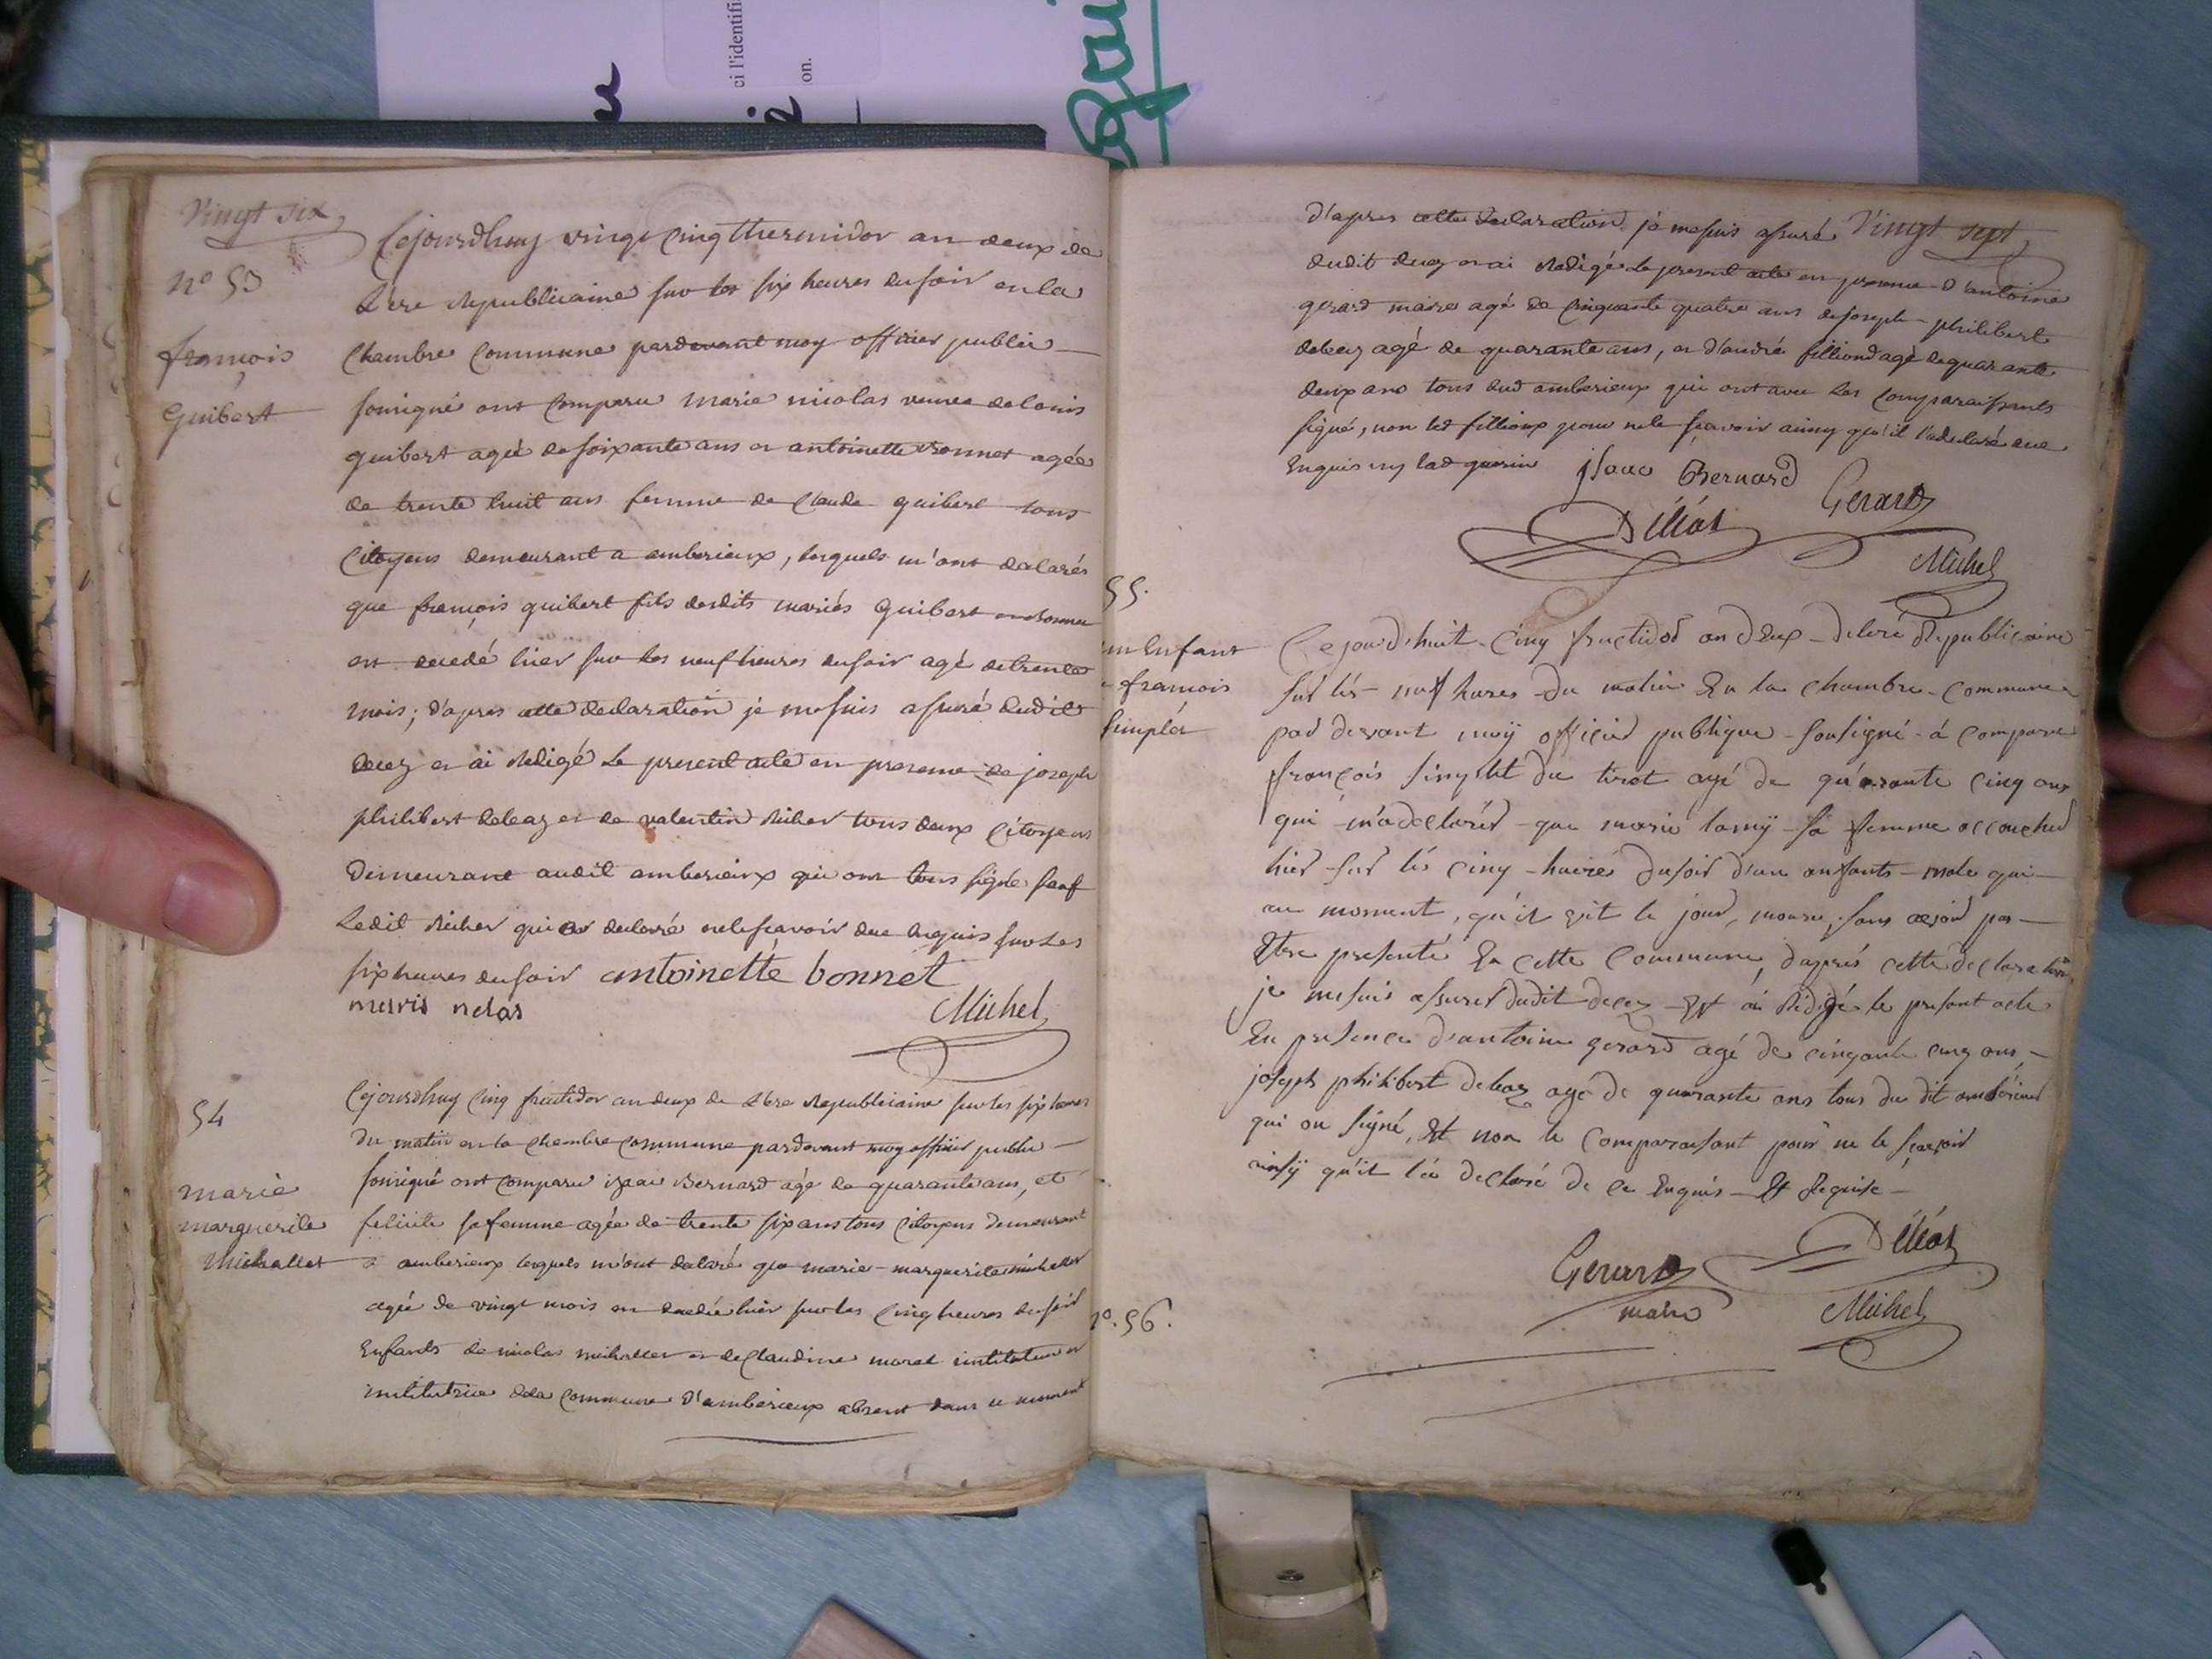 ci l'identifi
on.
Vingt six
N° 53
françois
Guibert
Cejourdhuy vingt cinq thermidor an deux de
L'ère Republicaine sur les six heures du soir en la
Chambre Commune pardevant moy officier public
soussigné ont comparu marie nicolas veuve de louis
guibert agée de soixante ans et antoinette bonnet agée
de trente huit ans femme de Claude guibert tous
Citoyens demeurant a amberieux, lesquels m'ont declarés
que françois guibert fils desdits mariés Guibert et bonnet
est decedé hier sur les neuf heures du soir agé de trente
mois; d'apres cette declaration je me suis assuré dudit
decez et ai Redigé le present acte en presence de joseph
philibert debeaz et de valentin Richer tous deux Citoyens
Demeurant audit amberieux qui ont tous signé sauf
Ledit Richer qui a declaré ne le sçavoir due enquis sur les
six heures du soir antoinette bonnet
meris nelas
Michel
54
marie
marguerite
Michallet
Cejourdhuy Cinq fructidor an deux de L'ère Republicaine sur les six heures
du matin en la Chambre Commune pardevant moy officier public
soussigné ont comparu izaac Bernard agé de quarante ans, et
felicité sa femme agée de trente six ans tous Citoyens demeurant
a amberieux lesquels m'ont declaré que marie-marguerite michallet
agée de vingt mois est decedée hier sur les Cinq heures du soir
Enfants de nicolas michallet et de Claudine morel instituteur et
institutrice de la Commune d'amberieux absent dans ce moment
Vingt sept
d'apres cette declaration je me suis assuré
dudit decez et ai Redigé le present acte en presence d'antoine
gerard maire agé de Cinquante quatre ans de joseph philibert
debeaz agé de quarante ans, et d'andré filliond agé de quarante
deux ans tous dud amberieux qui ont avec les Comparaissants
signé, non led filliond pour ne le sçavoir ainsy qu'il l'a declaré due
Enquis
isaac Bernard
Gerard
Michel
55.
un Enfant
françois
Simplét
Ce jourd'huit Cinq fructidor an deux de leré Republicaine
sur lés neuf hures du matin En la chambre Commune
par devant moÿ officier publique soussigné à comparu
françois simplét du tiret agé de quarante cinq ans
qui m'a declarér que marie lamÿ sa femme accouchud
hier sur lés cinq huires du soir d'un anfants male qui
au moment, qu'il vit le jour, mouru, sans avoir pas
Etre presenté En cette Commune, d'aprés cette declaration
je me suis assurér dudit decez Et ai Redigé le present acte
En presence d'antoine gerard agé de cinqante cinq ans,
joseph philibert debeaz agé de quarante ans tous du dit amberieux
qui on signé, Et non le Comparaisant pour ne le sçavoir
ainsÿ qu'il l'a declaré de ce Enquis Et Requise
Gerard
maire
Michel
n°. 56.